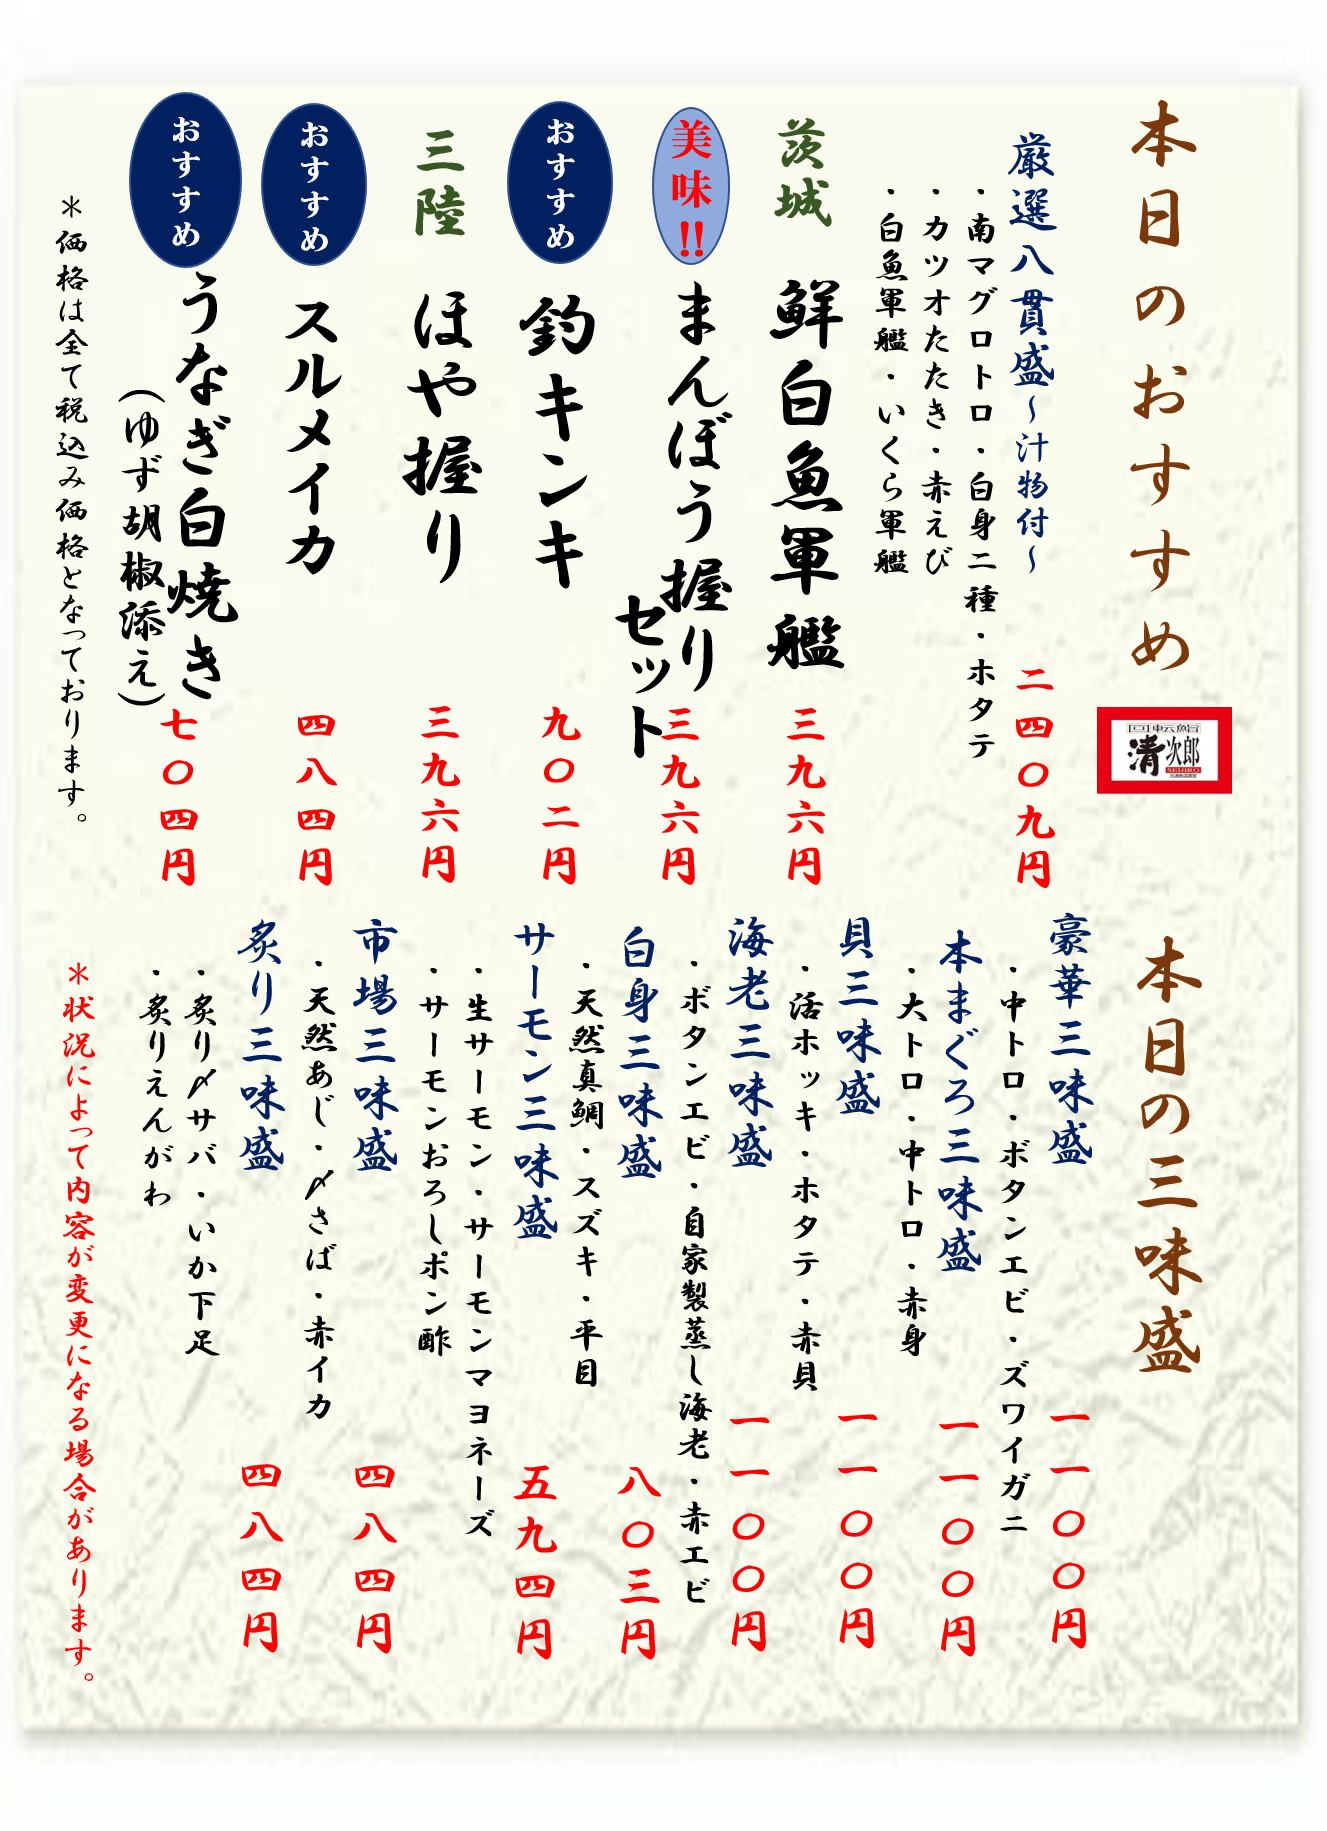 本日のおすすめ
回転鮨
清次郎
SEIJIRO
厳選八貫盛~汁物付~
二四〇九円
・南マグロトロ・白身二種・ホタテ
・カツオたたき・赤えび
・白魚軍艦・いくら軍艦
茨城
鮮白魚軍艦
三九六円
美味!!
まんぼう握り
セット
三九六円
おすすめ
釣キンキ
九〇二円
三陸
ほや握り
三九六円
おすすめ
スルメイカ
四八四円
おすすめ
うなぎ白焼き
(ゆず胡椒添え)
七〇四円
*価格は全て税込み価格となっております。
本日の三味盛
豪華三味盛
一一〇〇円
・中トロ・ボタンエビ・ズワイガニ
本まぐろ三味盛
一一〇〇円
・大トロ・中トロ・赤身
貝三味盛
一一〇〇円
・活ホッキ・ホタテ・赤貝
海老三味盛
一一〇〇円
・ボタンエビ・自家製蒸し海老・赤エビ
白身三味盛
八〇三円
・天然真鯛・スズキ・平目
サーモン三味盛
五九四円
・生サーモン・サーモンマヨネーズ
・サーモンおろしポン酢
市場三味盛
四八四円
・天然あじ・〆さば・赤イカ
炙り三味盛
四八四円
・炙り〆サバ・いか下足
・炙りえんがわ
*状況によって内容が変更になる場合があります。